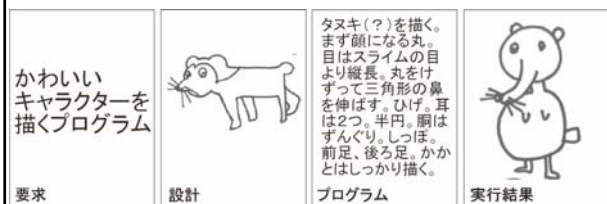 かわいい
キャラクターを
描くプログラム
要求
設計
タヌキ(?)を描く。
まず顔になる丸。
目はスライムの目
より縦長。丸をけ
ずって三角形の鼻
を伸ばす。ひげ。耳
は2つ。半円。胴は
ずんぐり。しっぽ。
前足、後ろ足。かか
とはしっかり描く。
プログラム
実行結果